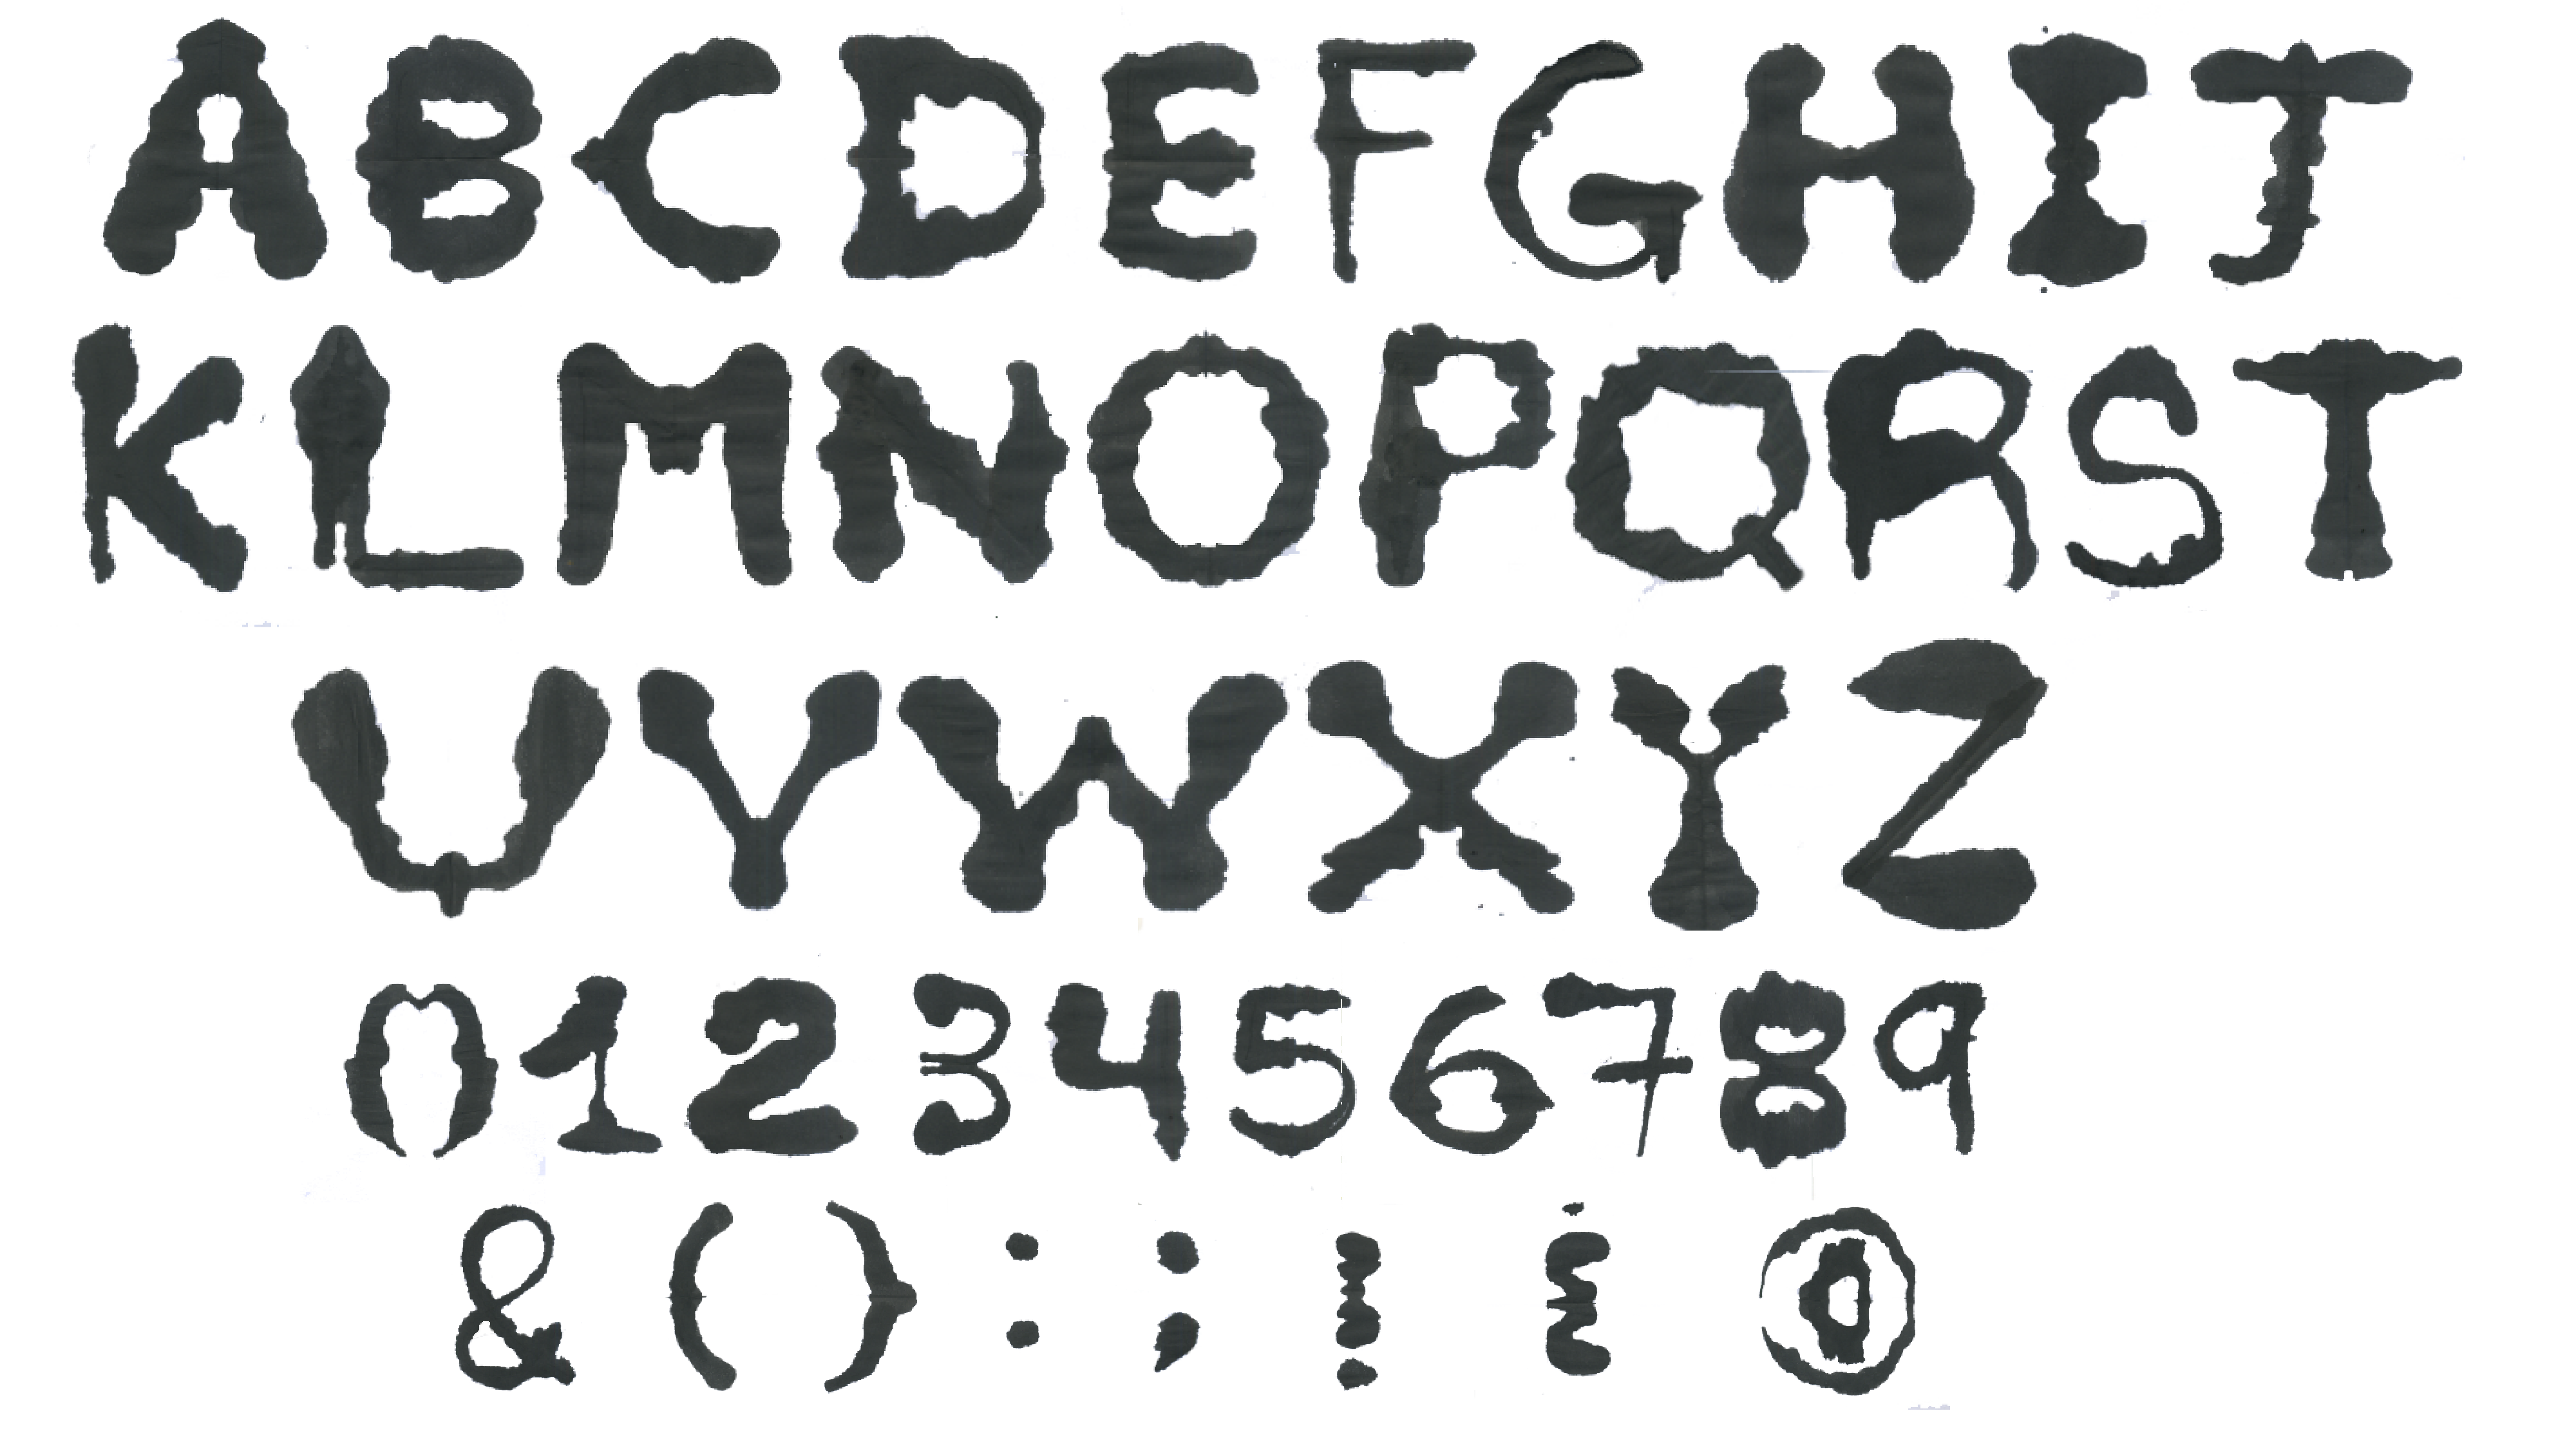 ABCDEFGHIJ
KLMNOPQRST
UVWXYZ
0123456789
&():;!